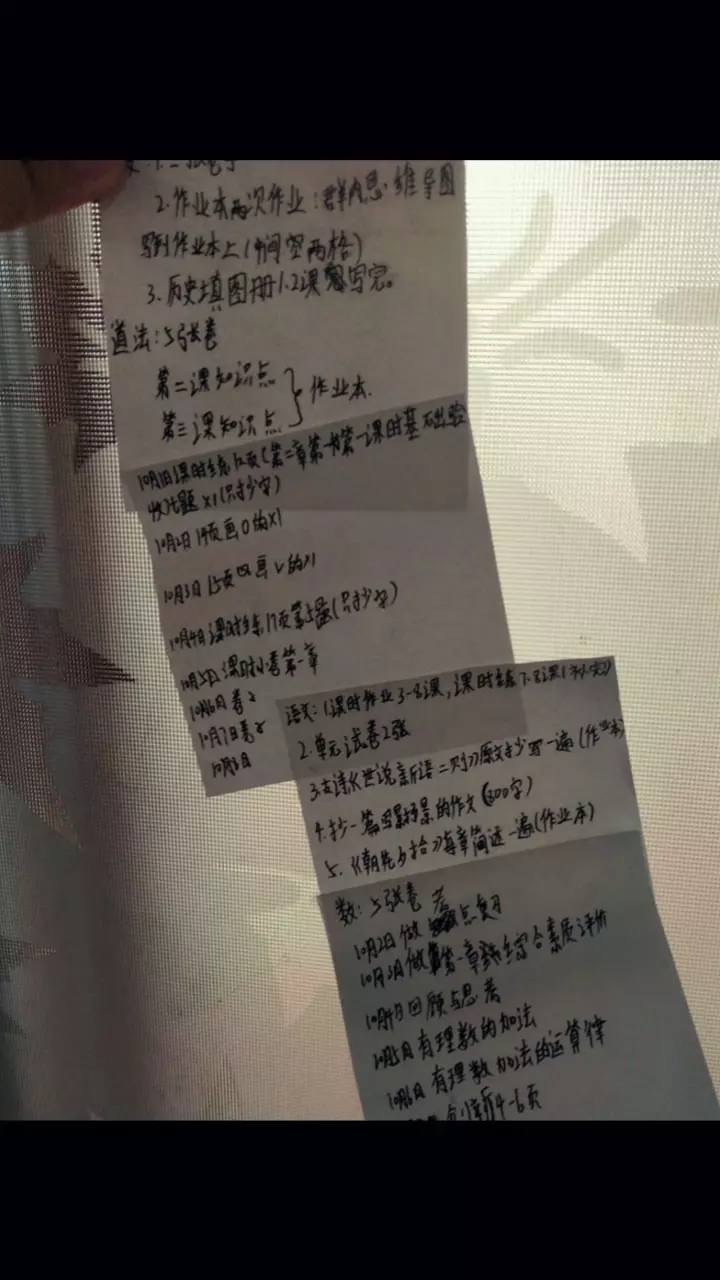 2.作业本两次作业:群内思维导图
写到作业本上(中间空两格)
3.历史填图册1.2课写完。
道法:5张卷
第二课知识点
第三课知识点 } 作业本.
10月1日课时练12页(第二章第一节第一课时基础验
收7题 X1(只抄字)
10月2日 14页画O的X1
10月3日 15页画√的X1
10月4日课时练17页第5题(只抄字)
10月5日课时小卷第一章
10月6日卷2
10月7日卷2
10月8日
语文:1课时作业3-8课,课时练7.8课
2.单元试卷2张
3古诗《世说新语二则》原文抄写一遍(作业本)
4.抄一篇写景的作文(300字)
5.《朝花夕拾》每章简述一遍(作业本)
数:5张卷
10月2日做点复习
10月3日做第一章综合素质评价
10月4日回顾与思考
10月5日有理数的加法
10月6日有理数加法的运算律
4-6页